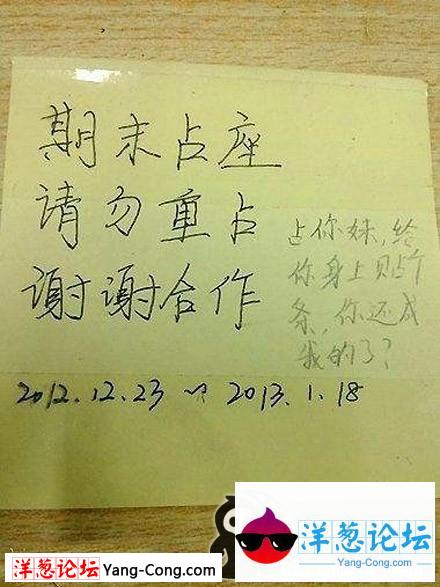 期末占座
请勿重占
谢谢合作
占你妹,给
你身上贴个
条,你还成
我的了?
2012.12.23 ~ 2013.1.18
洋葱论坛 Yang-Cong.com
洋葱论坛
Yang-Cong.com